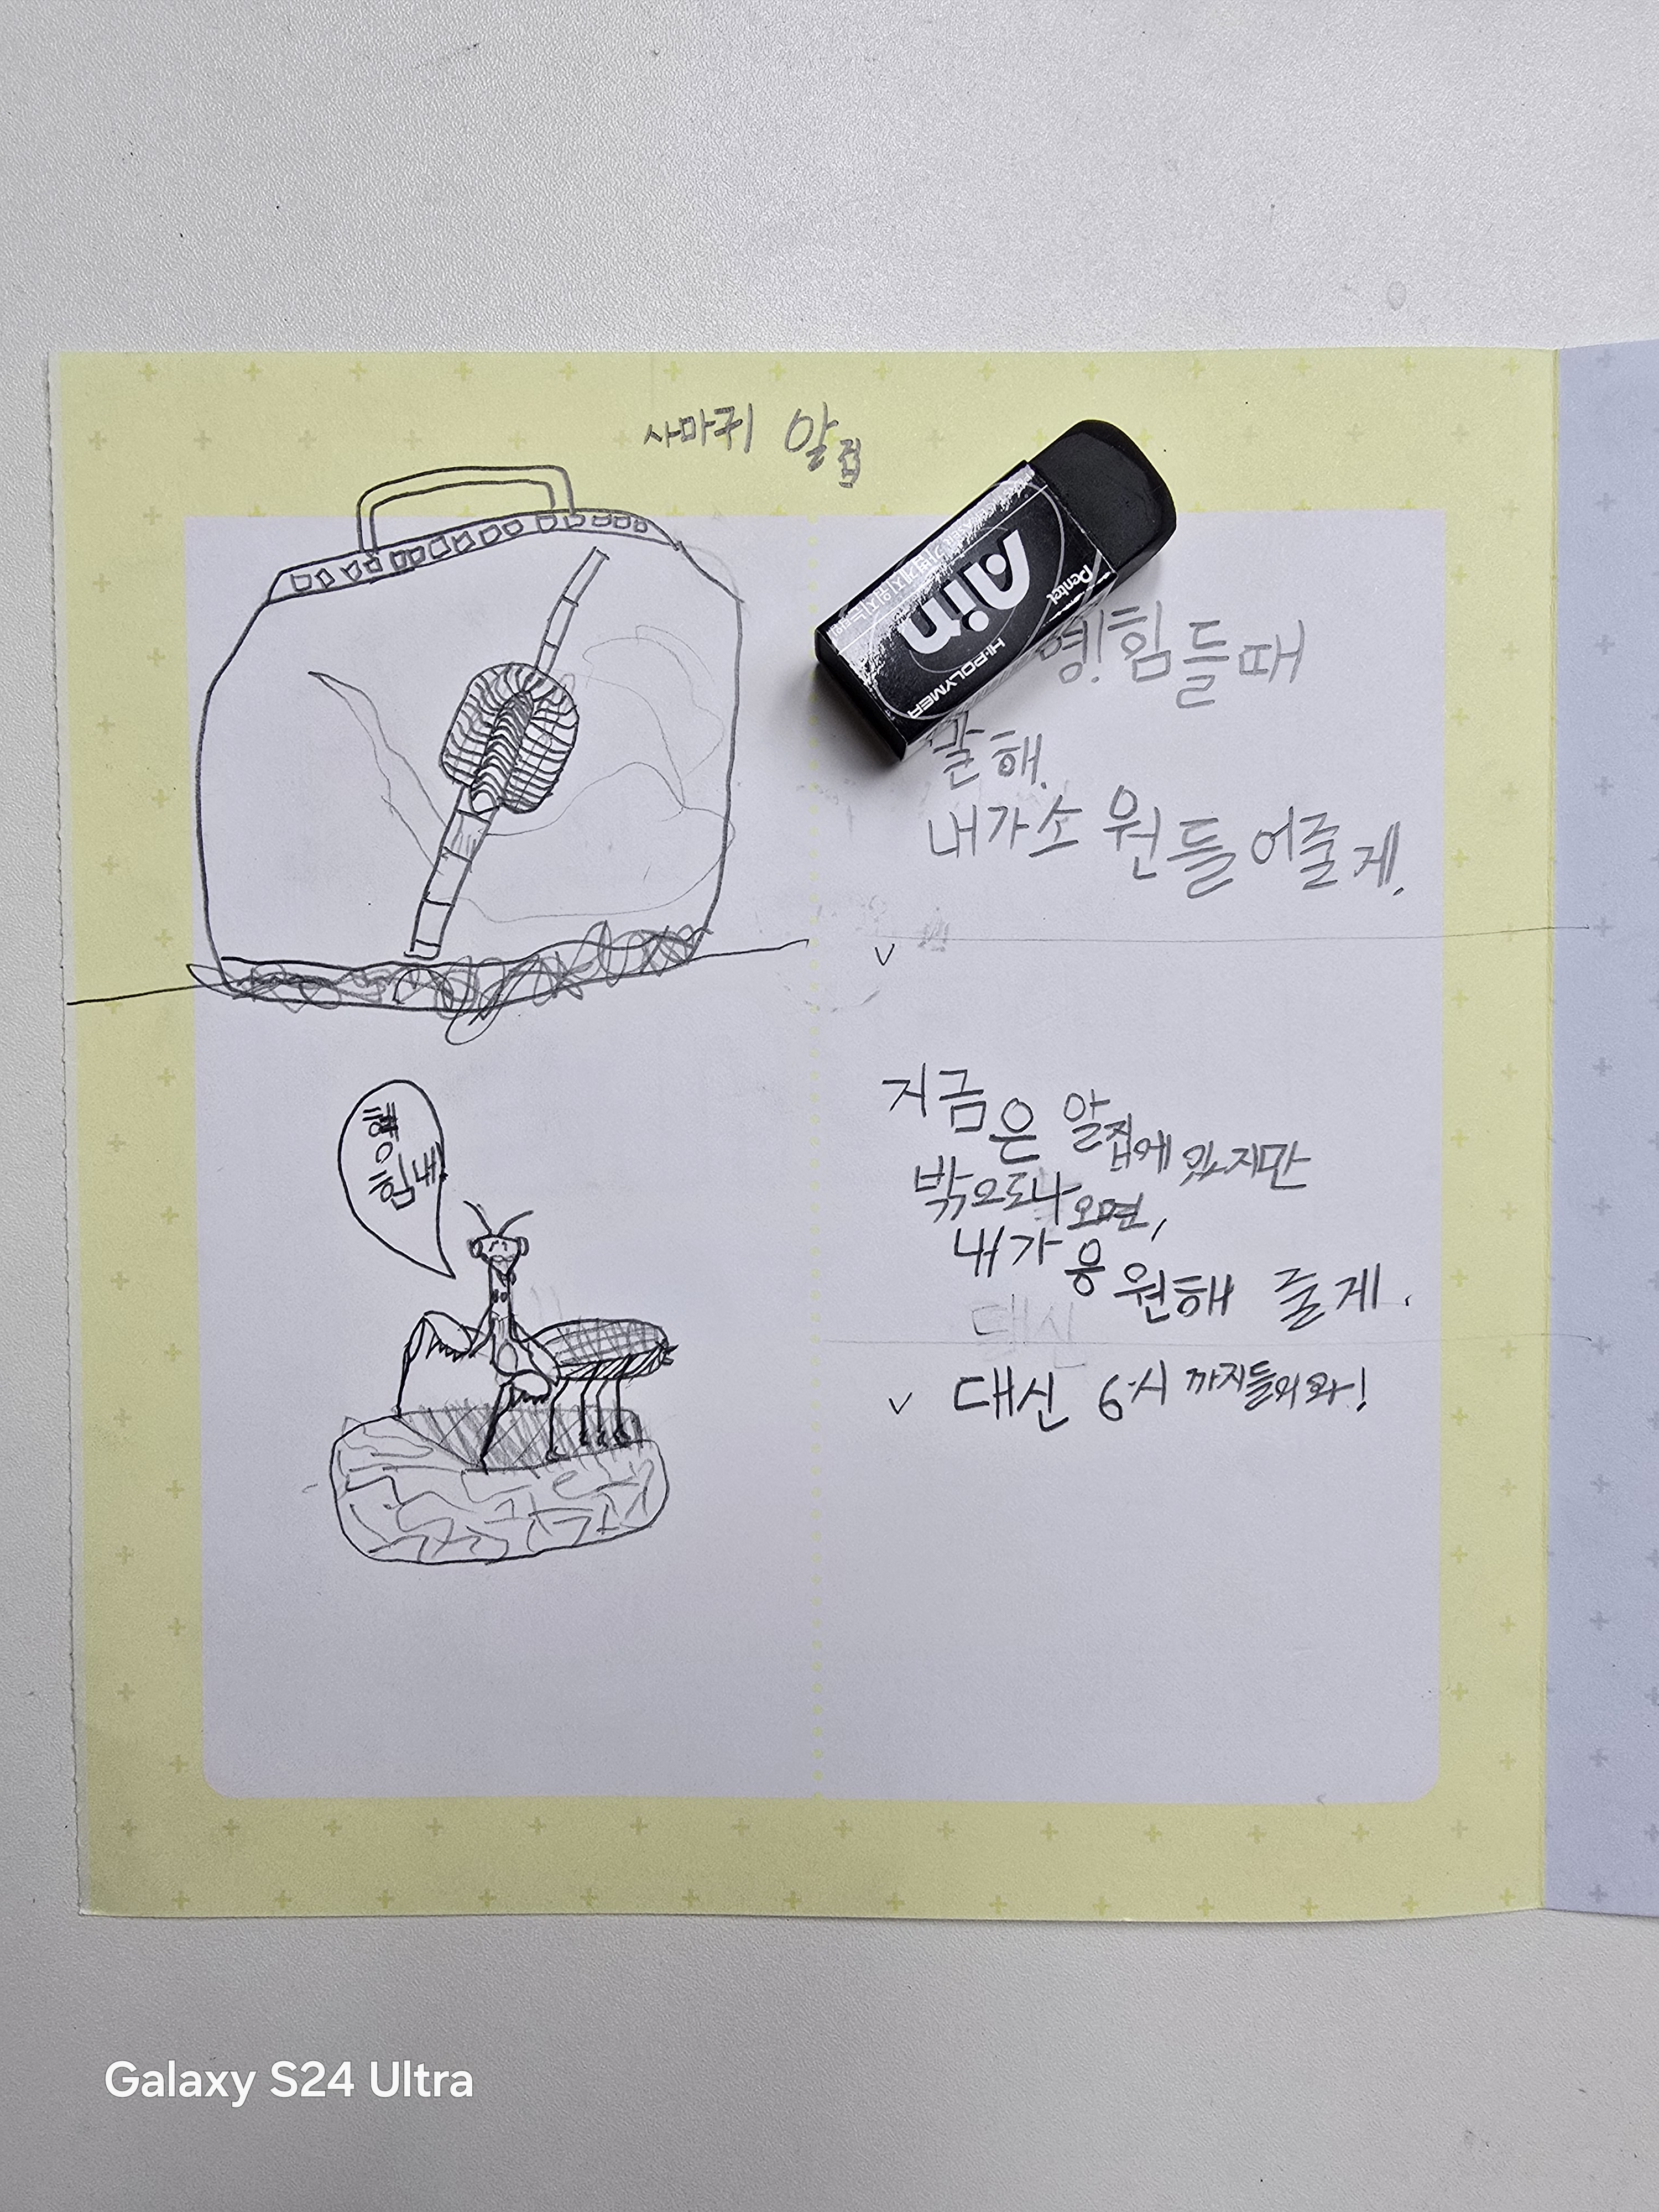 사마귀 알집
Ain
Pentel
HI-POLYMER
힘들때
말해.
내가소원들어줄게.
지금은 알집에 있지만
박으로나오면,
내가응원해 줄게.
대신
대신 6시까지들어와!
힘내
Galaxy S24 Ultra